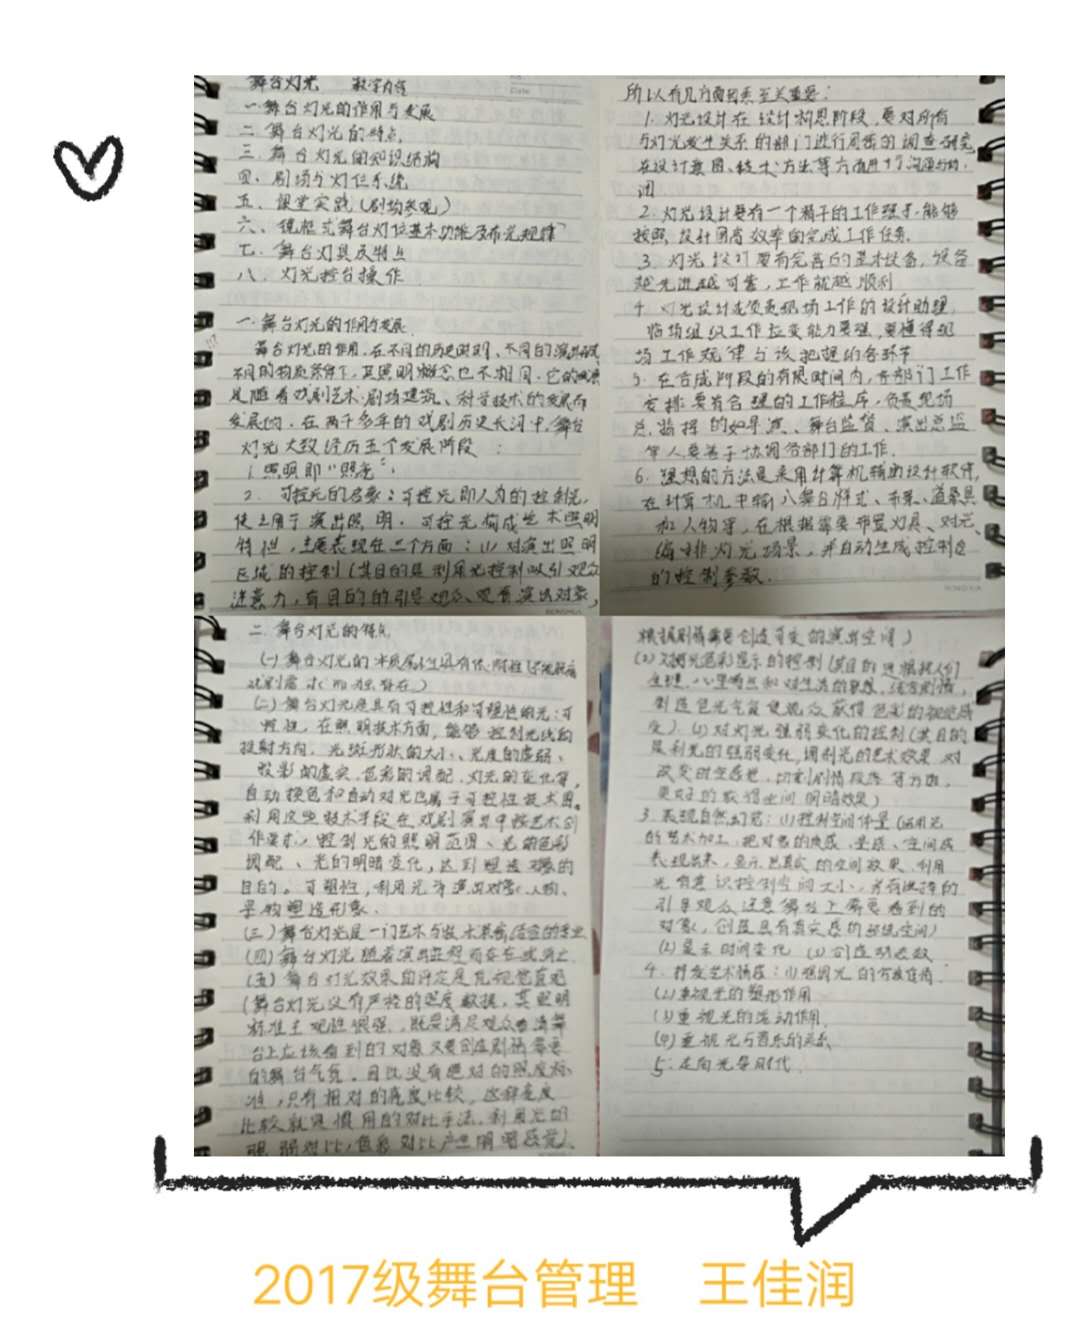 舞台灯光 教学内容
Date
一.舞台灯光的作用与发展
二.舞台灯光的特点
三.舞台灯光的知识结构
四、剧场与灯位系统
五、课堂实践(剧场参观)
六、镜框式舞台灯位基本功能及布光规律
七、舞台灯具及特点
八、灯光控台操作
一.舞台灯光的作用与发展
舞台灯光的作用,在不同的历史时期、不同的演出
不同的物质条件下,其照明概念也不相同.它的
是随着戏剧艺术.剧场建筑、科学技术的发展而
发展的.在两千多年的戏剧历史长河中,舞台
灯光大致经历五个发展阶段:
1.照明即"照亮":
2. 可控光的召唤:可控光即人为的控制光,
使之用于演出照明.可控光构成艺术照明
特性,主要表现在三个方面:(1)对演出照明
区域的控制(其目的是利用光控制吸引观众
注意力,有目的的引导观众观看演出对象,
所以有几方面因素至关重要:
1.灯光设计在设计构思阶段,要对所有
与灯光发生关系的部门进行周密的调查研究
在设计意图、技术方法等方面进行沟通与协
调
2.灯光设计要有一个精干的工作班子,能够
按照设计图高效率的完成工作任务.
3.灯光设计要有完善的基本设备,设备
越先进越可靠,工作就越顺利
4.灯光设计或负责现场工作的设计助理,
临场组织工作应变能力要强,要懂得现
场工作规律与该把握的各环节
5.在合成阶段的有限时间内,各部门工作
安排要有合理的工作程序,负责现场
总指挥的如导演、舞台监督、演出总监
等人要善于协调各部门的工作.
6.理想的方法是采用计算机辅助设计软件,
在计算机中输入舞台样式、布景、道具
和人物等,在根据需要布置灯具、对光、
编排灯光场景,并自动生成控制台
的控制参数.
二.舞台灯光的特点
(一)舞台灯光的
戏剧需求而独立存在)
(二)舞台灯光是具有可控性和可塑性的光:可
控性,在照明技术方面,能够控制光线的
投射方向、光斑形状的大小、光度的强弱、
投影的虚实、色彩的调配、灯光的变化等,
自动换色和自动对光也属于可控性技术图.
利用这些技术手段在戏剧演出中按艺术创
作要求,控制光的照明范围、光的色彩
调配、光的明暗变化,达到塑造对象的
目的。可塑性,利用光為演出对象(人物、
景物塑造形象.
(三)舞台灯光是一门艺术与技术紧密结合的专业
(四)舞台灯光随着演出进程而存在或消亡.
(五)舞台灯光效果的评定是凭视觉直观
(舞台灯光没有严格的照度数据,其照明
标准主观性很强.既要满足观众看清舞
台上应该看到的对象又要创造剧情需要
的舞台气氛.因此没有绝对的照度标
准,只有相对的亮度比较,这种亮度
比较就是惯用的对比手法.利用光的
强弱对比,色彩对比产生明暗感觉)、
根据剧情需要创造可变的演出空间)
(2)对舞光色彩显示的控制(其目的是根据人们
生理、心理特点和对生活的联想,结合剧情,
创造色光气氛使观众获得色彩的视觉感
受).(3)对灯光强弱变化的控制(其目的
是利光的强弱变化,调制光的艺术效果,对
改变时空感觉、切割剧情段落等方面,
更好的获得空间明暗效果)
3.表现自然幻觉:(1)控制空间体量(运用光
的艺术加工,把对象的质感、量感、空间感
表现出来,显示出真实的空间效果.利用
光有意识控制空间大小,并有选择的
引导观众注意舞台上需要看到的
对象,创造具有真实感的环境空间)
(2)显示时间变化 (3)创造动态效
4.开发艺术情感:(1)强调光的写意作用
(2)重视光的塑形作用
(3)重视光的运动作用
(4)重视光与音乐的关系
5.走向光导时代.
2017级舞台管理 王佳润